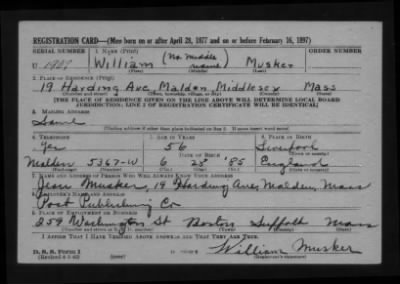 REGISTRATION CARD—(Men born on or after April 28, 1877 and on or before February 16, 1897)
SERIAL NUMBER 1. NAME (Print) ORDER NUMBER
U 1909 William (No middle name) Musker
(First) (Middle) (Last)
2. PLACE OF RESIDENCE (Print)
19 Harding Ave Malden Middlesex Mass
[THE PLACE OF RESIDENCE GIVEN ON THE LINE ABOVE WILL DETERMINE LOCAL BOARD
JURISDICTION; LINE 2 OF REGISTRATION CERTIFICATE WILL BE IDENTICAL]
3. MAILING ADDRESS
Same
[Mailing address if other than place indicated on line 2. If same insert word same]
4. TELEPHONE 5. AGE IN YEARS 6. PLACE OF BIRTH
Yes 56 Liverpool
DATE OF BIRTH
Malden 5367-W 6 28 '85 England
7. NAME AND ADDRESS OF PERSON WHO WILL ALWAYS KNOW YOUR ADDRESS
Musker, 19 Harding Ave, Malden, Mass
8. EMPLOYER'S NAME AND ADDRESS
Post Publishing Co
9. PLACE OF EMPLOYMENT OR BUSINESS
259 Washington St Boston Suffolk Mass
I AFFIRM THAT I HAVE VERIFIED ABOVE ANSWERS AND THAT THEY ARE TRUE.
William Musker
D. S. S. Form 1
(Registrant's signature)